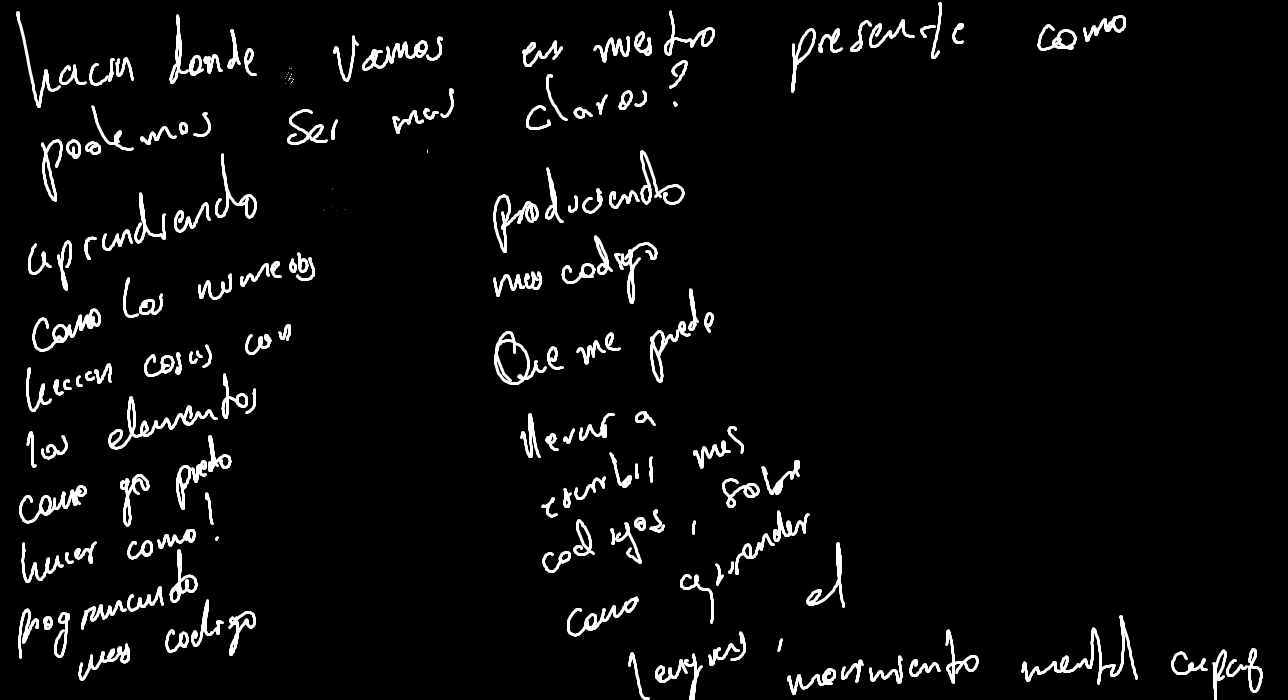 hacia donde vamos en nuestro presente como
podemos ser mas claros?
aprendiendo
como los numeros
hacen cosas con
los elementos
como yo puedo
hacer como!
programando
mas codigo
produciendo
mas codigo
Que me puede
llevar a
escribir mas
codigos, sobre
como aprender
el
movimiento mental capaz